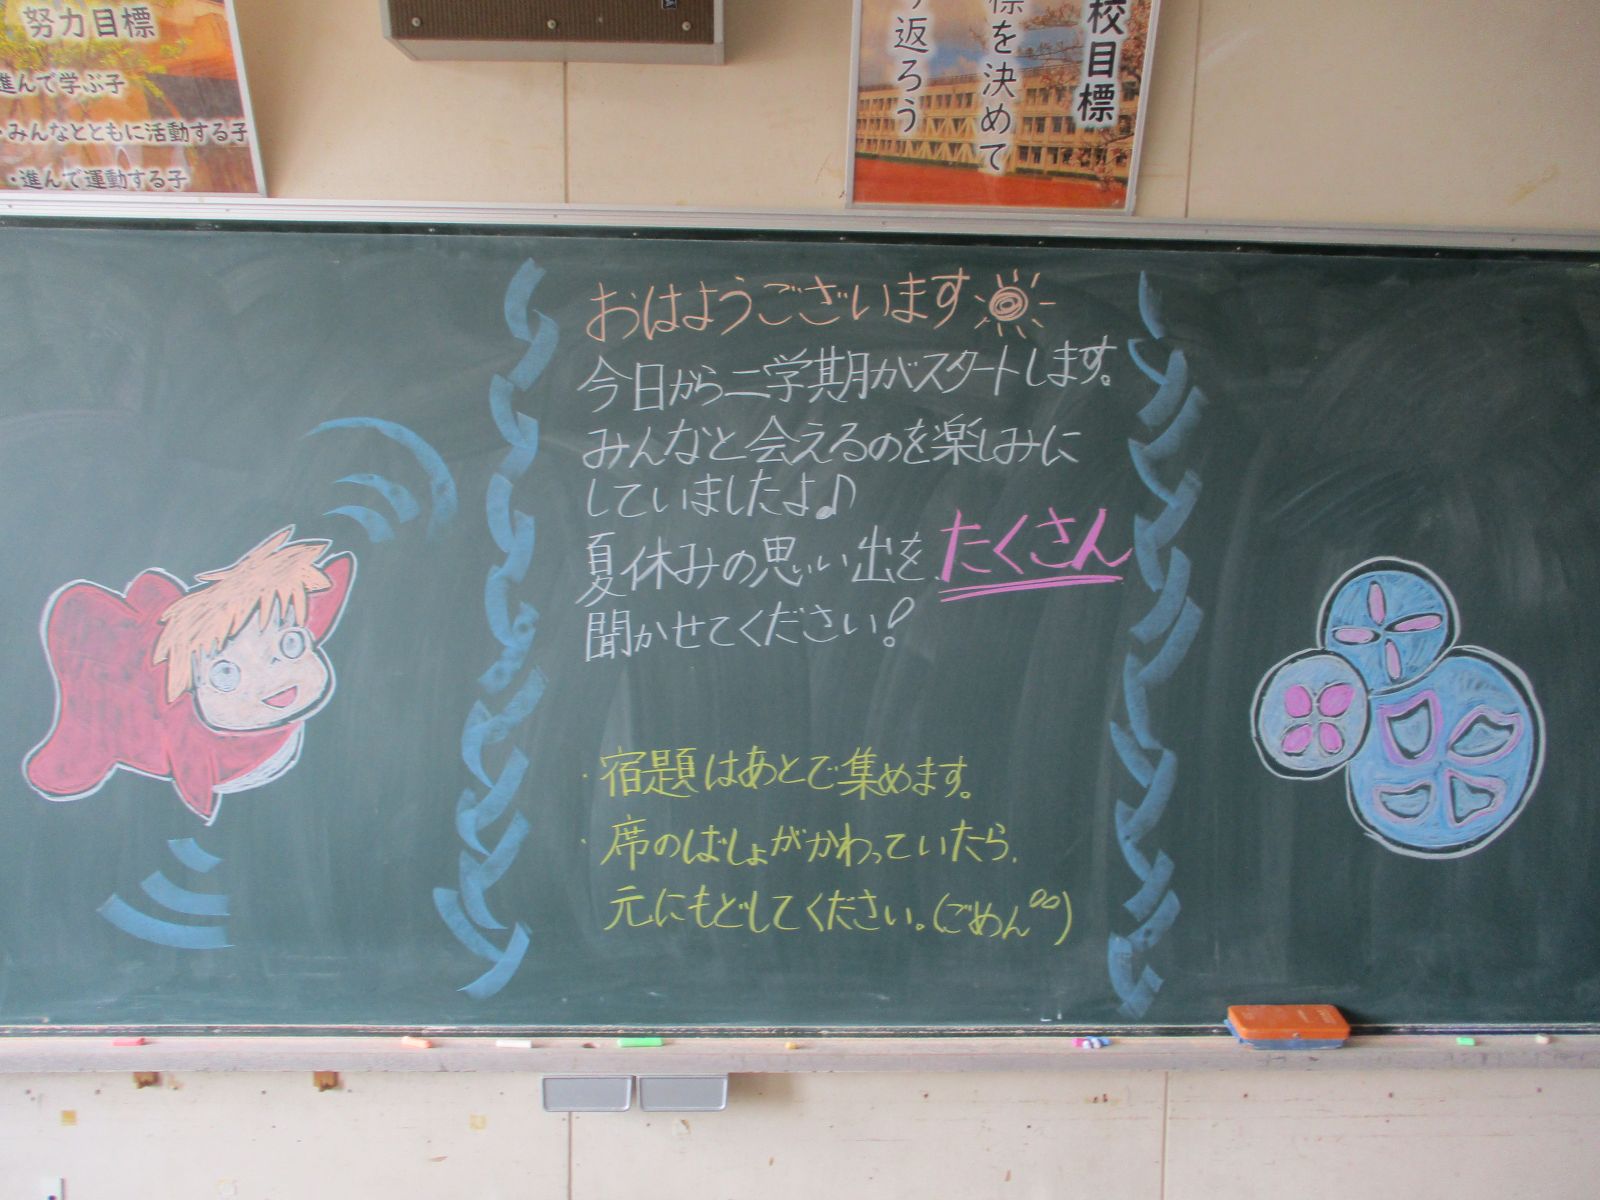 努力目標
進んで学ぶ子
・みんなとともに活動する子
・進んで運動する子
校目標
標を決めて
り返ろう
おはようございます
今日から二学期がスタートします。
みんなと会えるのを楽しみに
していましたよ♪
夏休みの思い出を、たくさん
聞かせてください!
・宿題はあとで集めます。
・席のばしょがかわっていたら、
元にもどしてください。(ごめん。。)